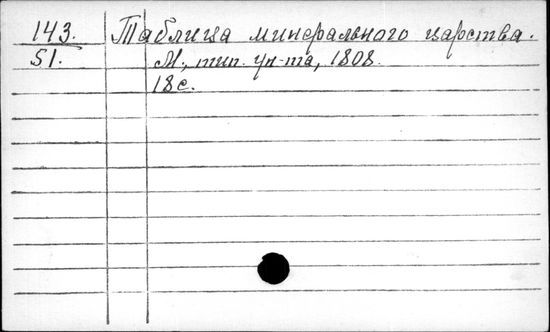 143. Таблица минерального царства.
51. М., тип. ун-та, 1808.
18с.